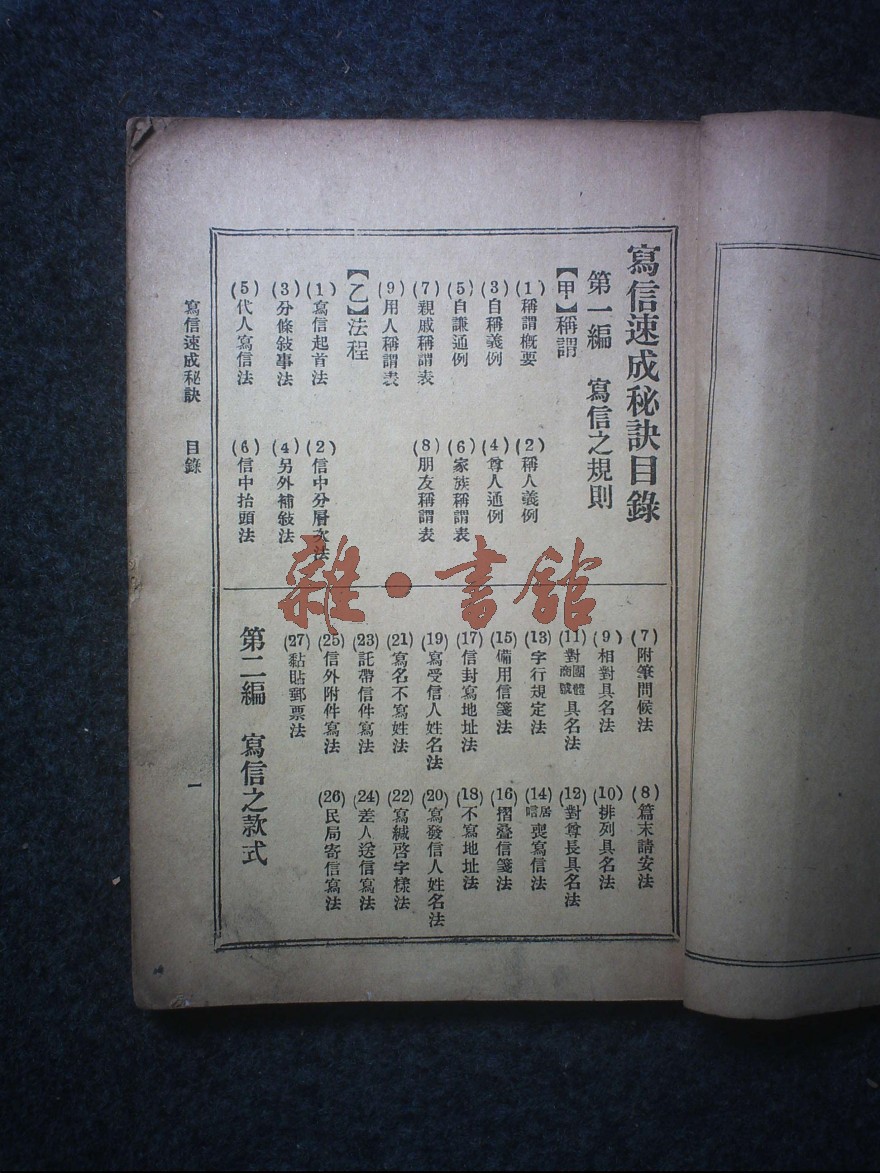 寫信速成秘訣目錄
第一編 寫信之規則
【甲】稱謂
(1)稱謂概要 (2)稱人義例
(3)自稱義例 (4)尊人通例
(5)自謙通例 (6)家族稱謂表
(7)親戚稱謂表 (8)朋友稱謂表
(9)用人稱謂表
【乙】法程
(1)寫信起首法 (2)信中分層次法
(3)分條敍事法 (4)另外補敍法
(5)代人寫信法 (6)信中抬頭法
(7)附筆問候法 (8)篇末請安法
(9)相對具名法 (10)排列具名法
(11)對團體商號具名法 (12)對尊長具名法
(13)字行規定法 (14)居喪寫信法
(15)備用信箋法 (16)摺疊信箋法
(17)信封寫地址法 (18)不寫地址法
(19)寫受信人姓名法 (20)寫發信人姓名法
(21)寫名不寫姓法 (22)寫緘啓字樣法
(23)託帶信件寫法 (24)差人送信寫法
(25)信外附件寫法 (26)民局寄信寫法
(27)黏貼郵票法
第二編 寫信之款式
寫信速成秘訣 目錄
一
雜·書館